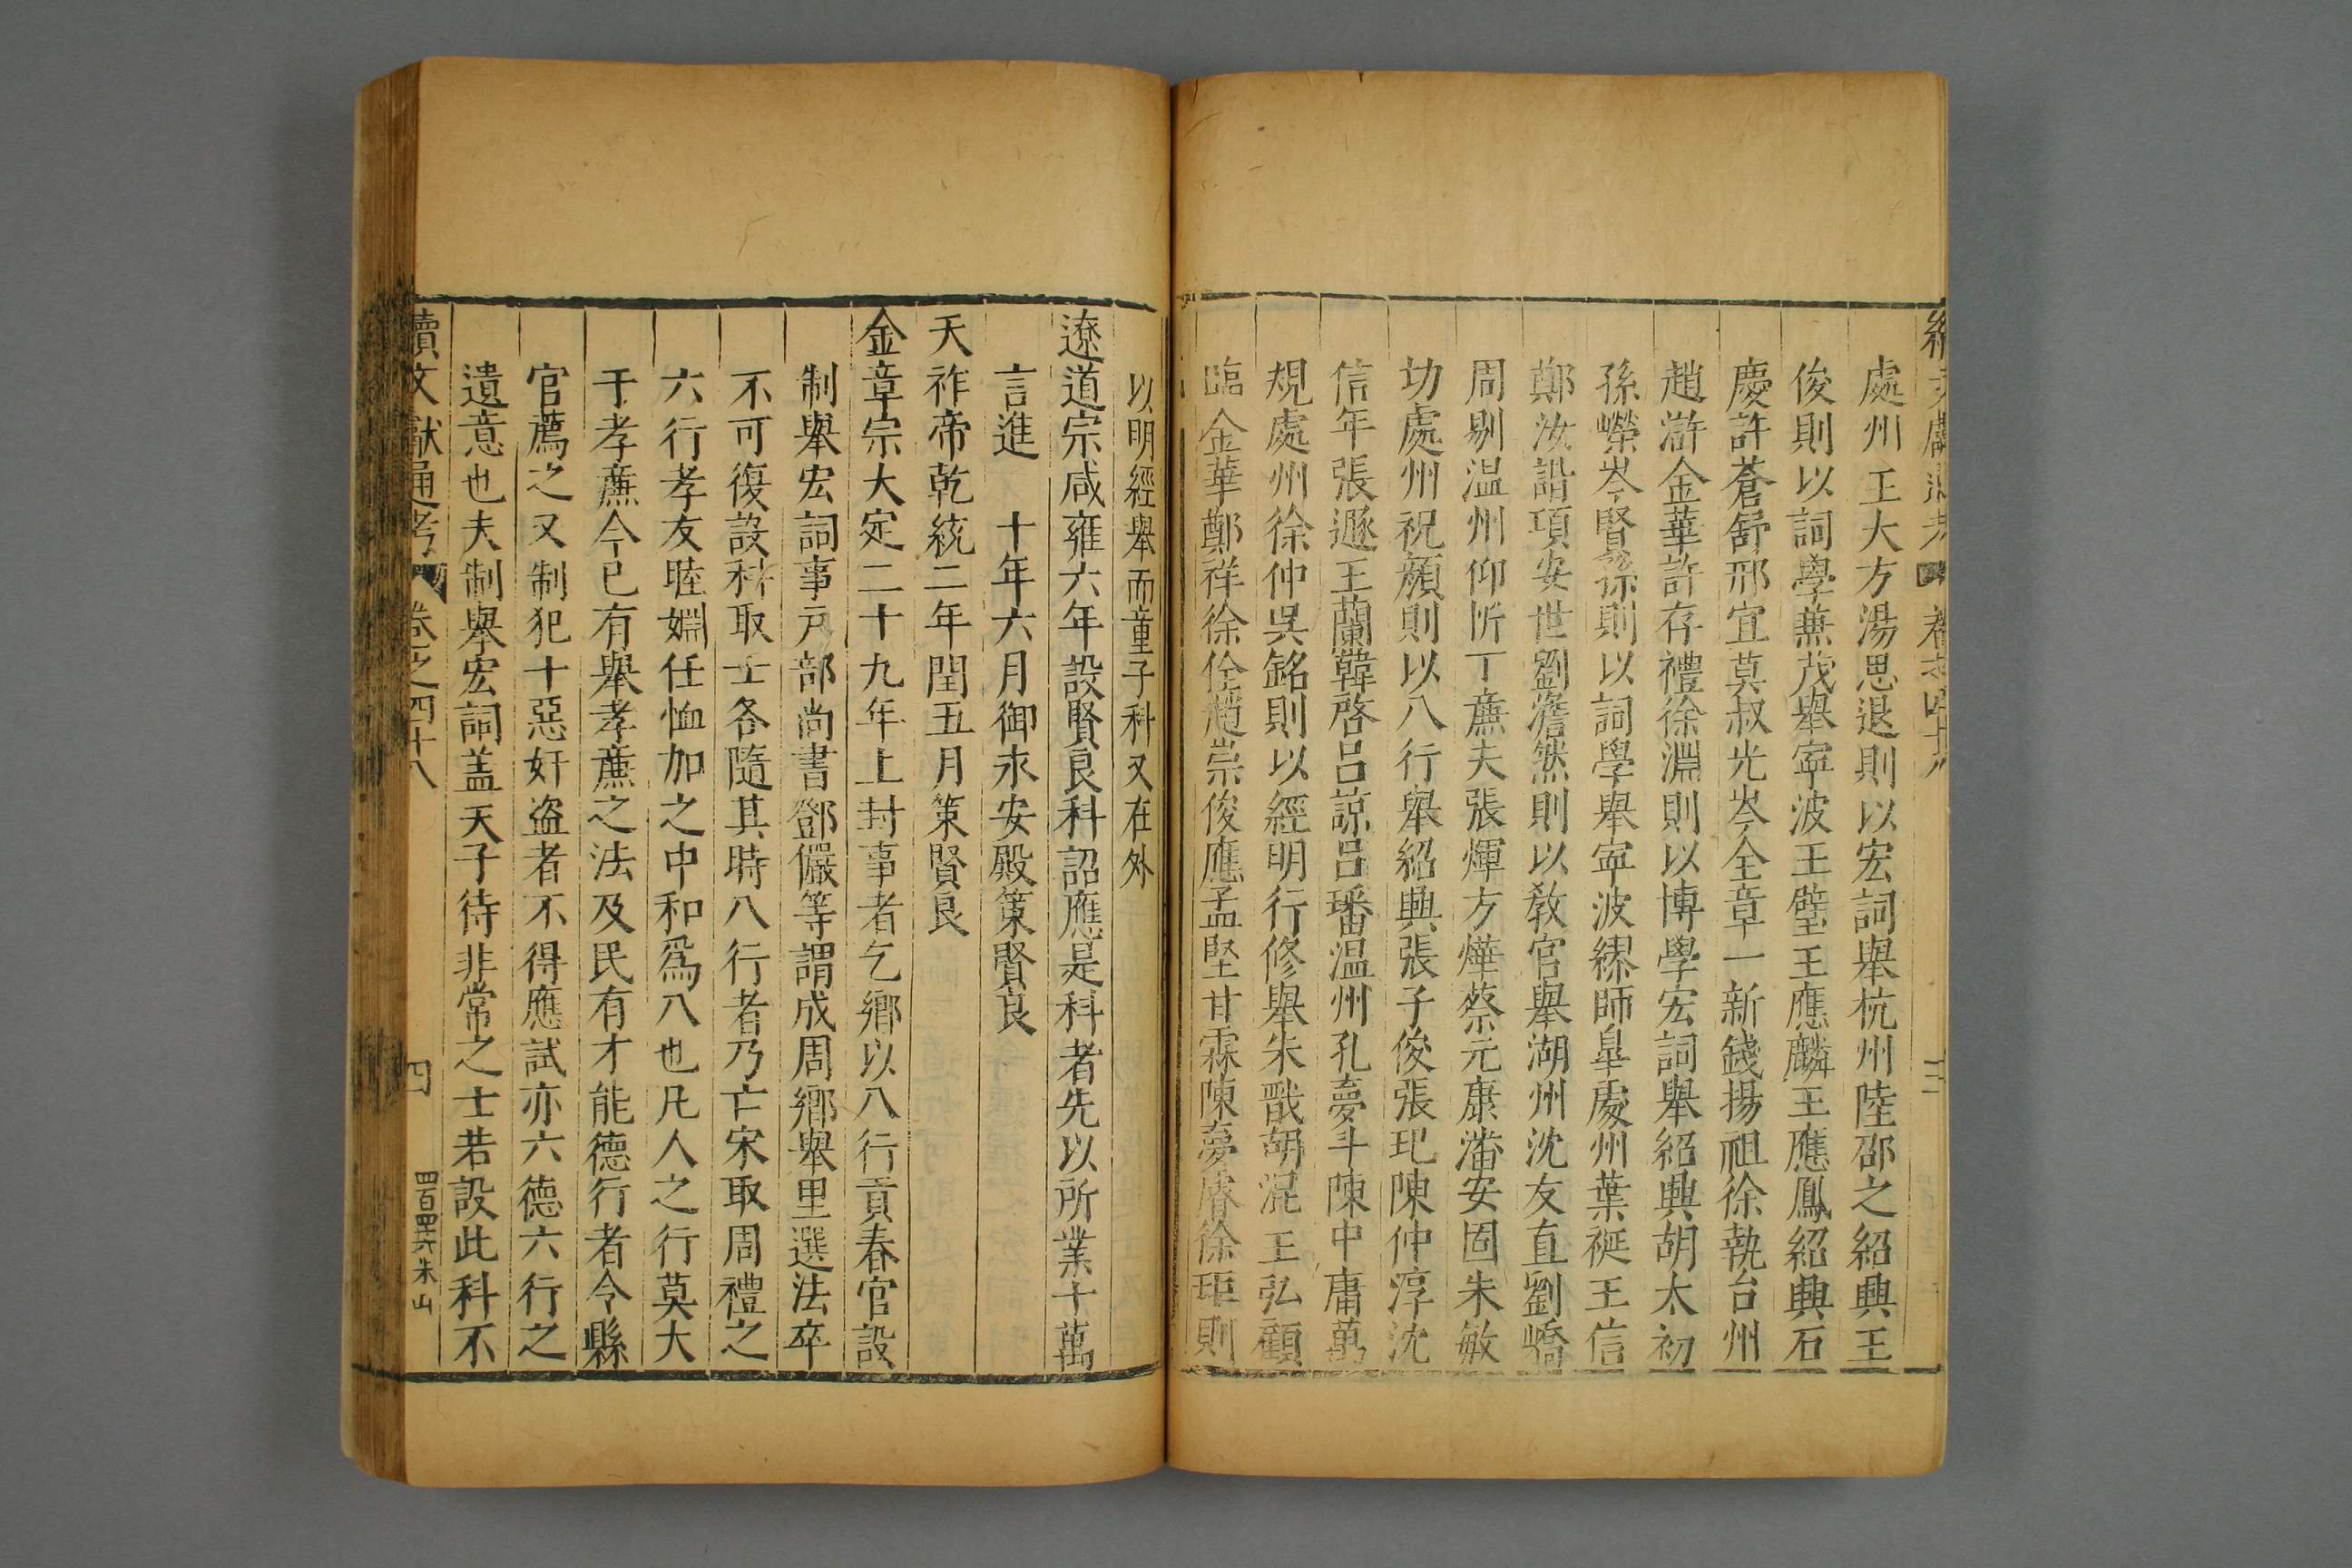 處州王大方湯思退則以宏詞舉杭州陸邵之紹興王
俊則以詞學兼茂舉寧波王璧王應麟王應鳳紹興石
慶許蒼舒邢宜莫叔光岑全章一新錢揚祖徐執台州
趙滸金華許存禮徐淵則以博學宏詞舉紹興胡太初
孫嶸岑賢孫則以詞學舉寧波繆師皐處州葉王信
鄭汝諧項安世劉澹然則以教官舉湖州沈友直劉嶠
周剔温州仰忻丁廉夫張煇方燁蔡元康潘安固朱敏
功處州祝顏則以八行舉紹興張子俊張玘陳仲淳沈
信年張遜王蘭韓啓吕諒吕璠温州孔夢斗陳中庸萬
規處州徐仲吳銘則以經明行修舉朱戩胡混王弘顧
臨金華鄭祥徐佺趙崇俊應孟堅甘霖陳夢徐則
以明經舉而童子科又在外
遼道宗咸雍六年設賢良科詔應是科者先以所業十萬
言進 十年六月御永安殿策賢良
天祚帝乾統二年閏五月策賢良
金章宗大定二十九年上封事者乞鄉以八行貢春官設
制舉宏詞事戸部尚書鄧儼等謂成周鄉舉里選法卒
不可復設科取士各隨其時八行者乃亡宋取周禮之
六行孝友睦婣任恤加之中和爲八也凡人之行莫大
于孝廉今已有舉孝廉之法及民有才能德行者令縣
官薦之又制犯十惡奸盗者不得應試亦六德六行之
遺意也夫制舉宏詞盖天子待非常之士若設此科不
續文獻通考 卷之四十八 四 四百四六朱山